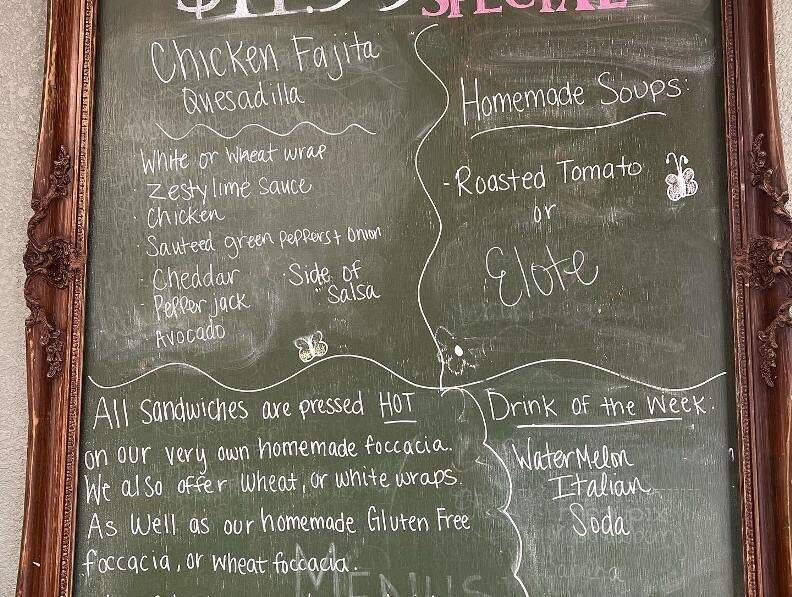 $11.95 SPECIAL
Chicken Fajita
Quesadilla
White or Wheat wrap
· Zesty lime Sauce
· Chicken
· Sauteed green peppers + onion
· Cheddar
· Pepper jack
· Avocado
· Side of
Salsa
Homemade Soups:
- Roasted Tomato
or
Elote
All Sandwiches are pressed HOT
on our very own homemade foccacia.
We also offer wheat, or white wraps.
As Well as our homemade Gluten Free
foccacia, or wheat foccacia.
Drink of the Week:
WaterMelon
Italian
Soda
Menus